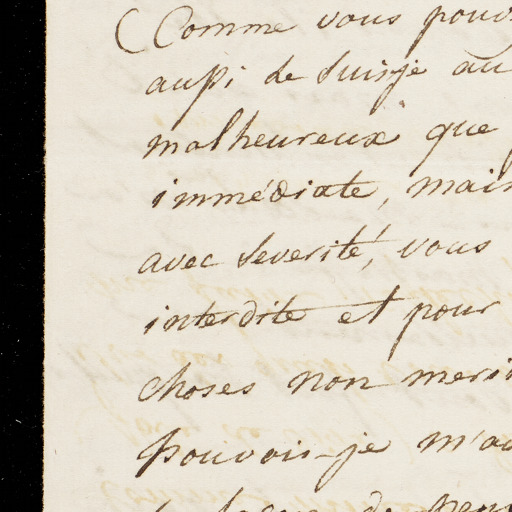 (Comme vous pouv
aussi de suis-je au
malheureux que
immédiate, main
avec severité, vous
interdite et pour
choses non meri
pouvois-je m'a
de